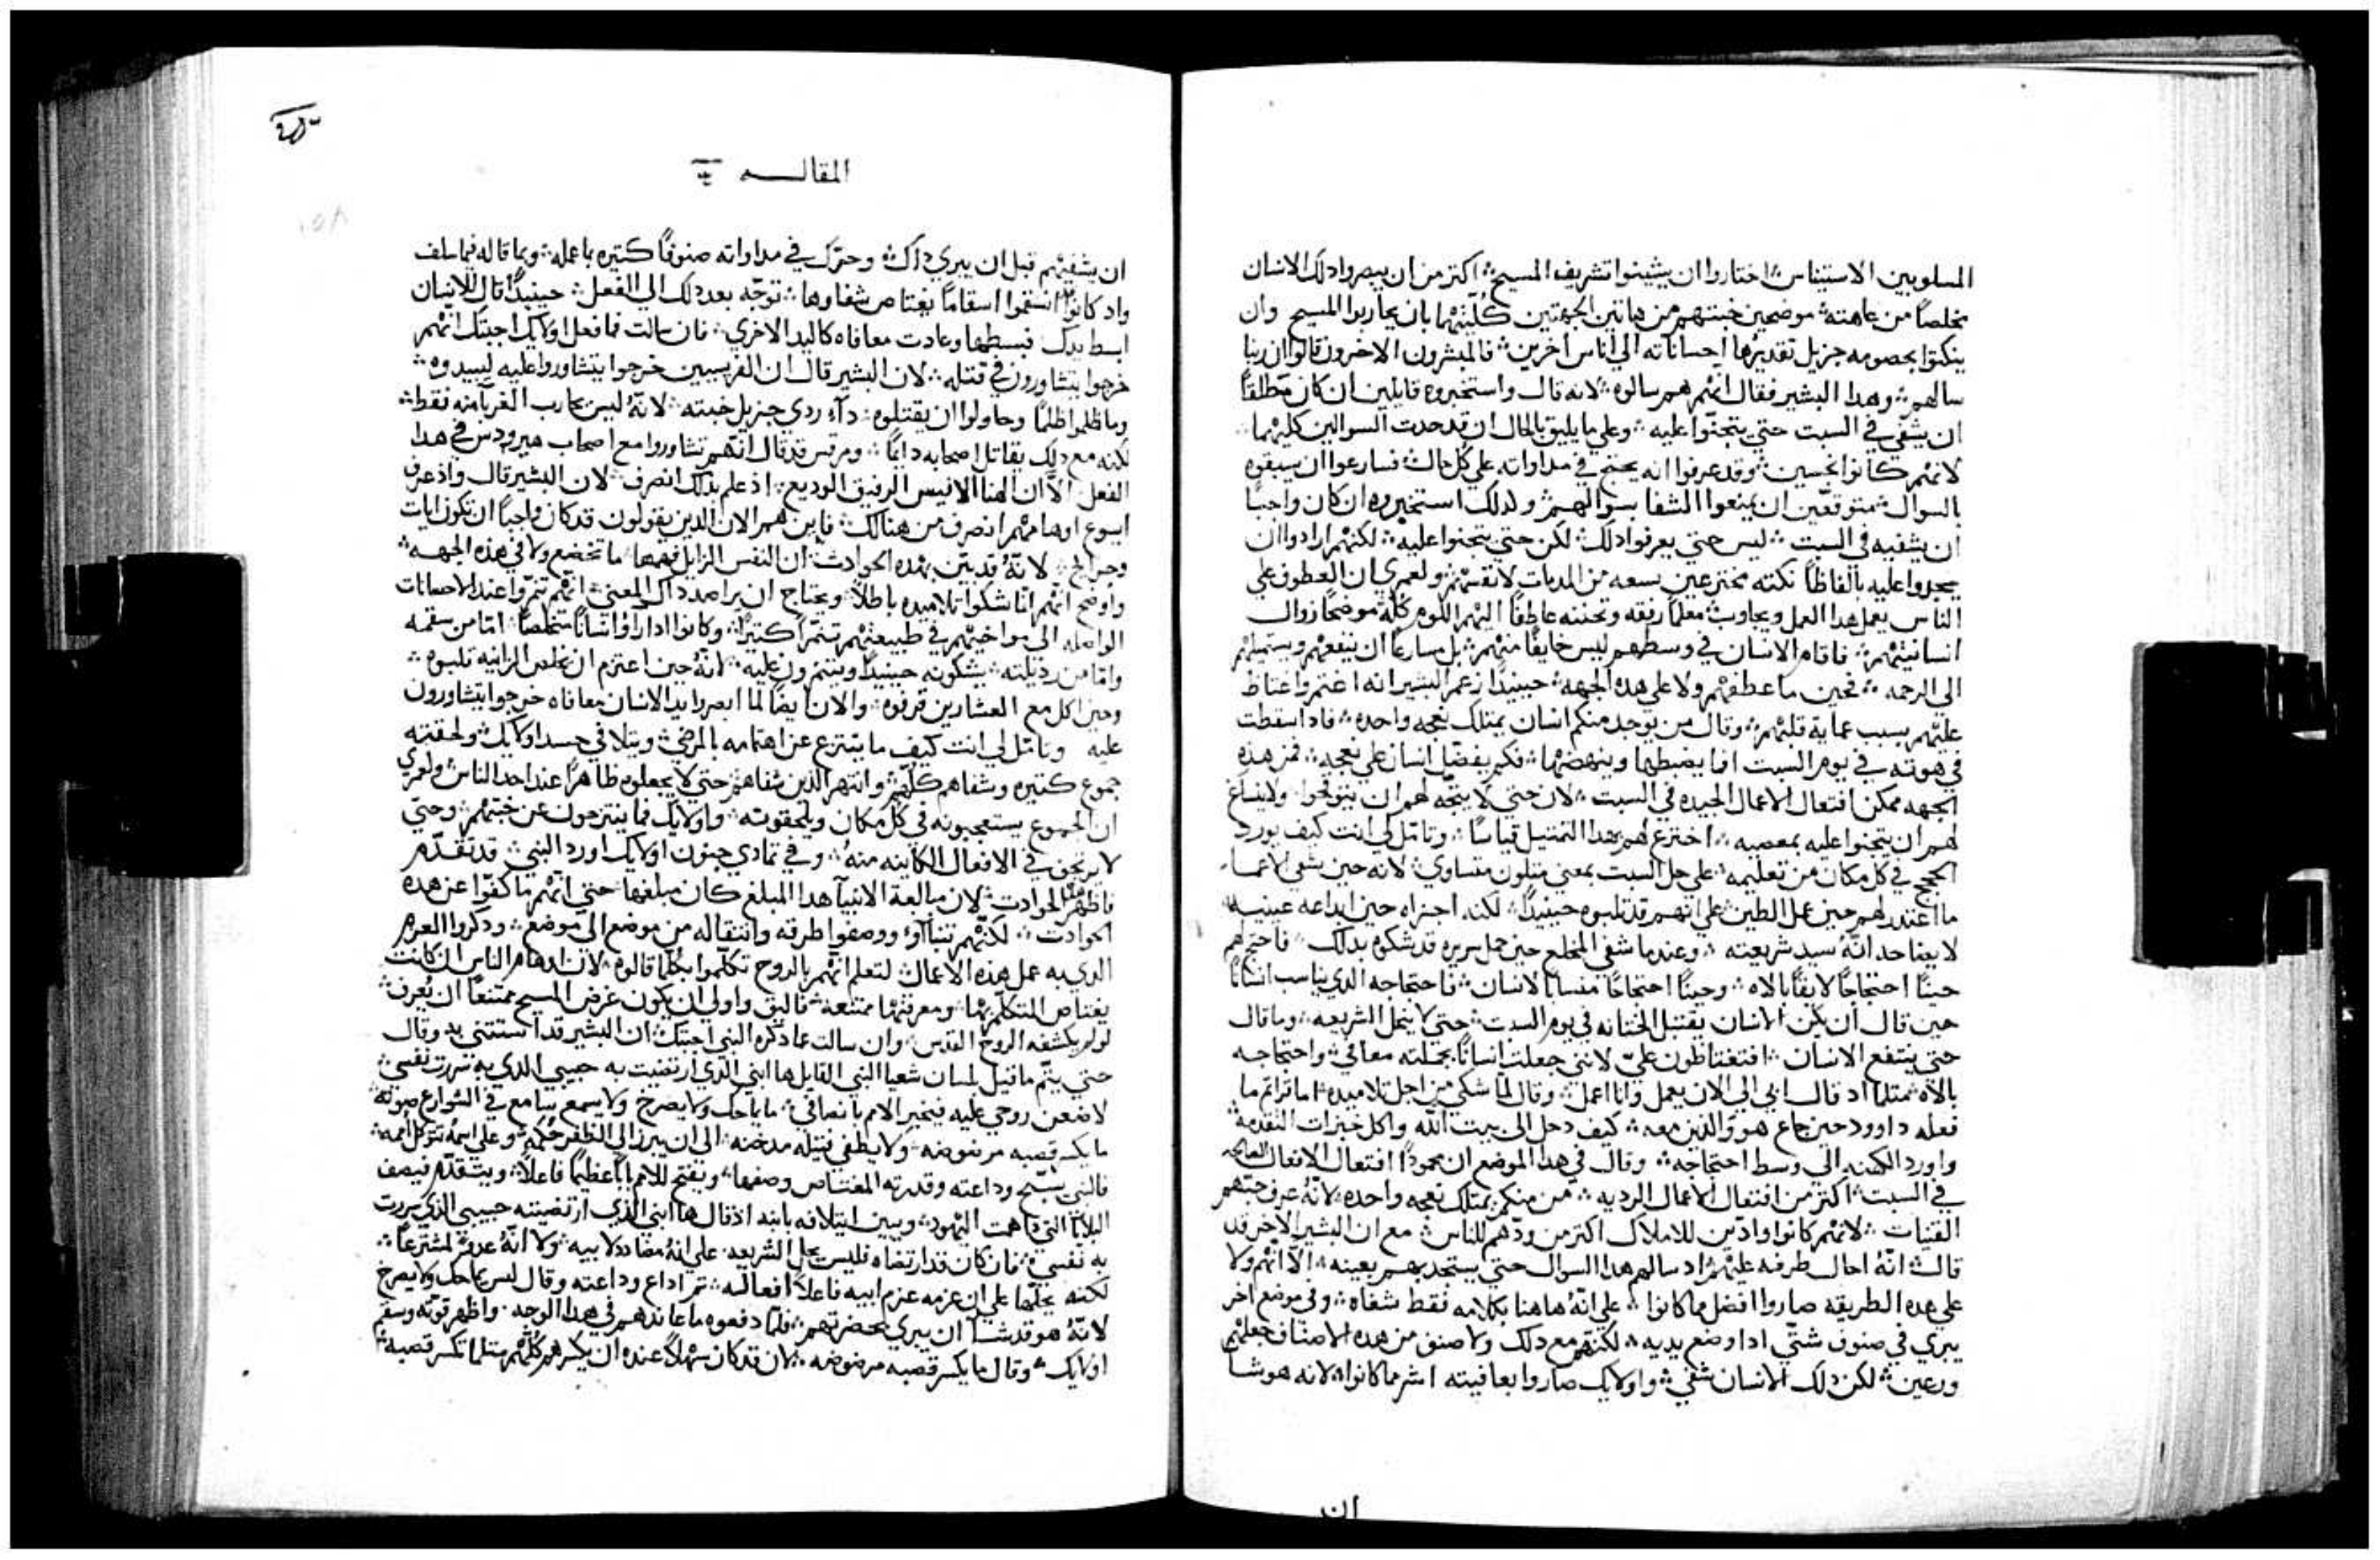 المسلوبين الاستيناس اختاروا ان يشينوا تشريف المسيح اكتر من ان يبصروا دلك الانسان
مخلصًا من عاهته موضحين خبتهم من هاتين الجهتين كلتيهما بان يحاربوا المسيح وان
ينكتوا بخصومه جزيل تقديرها احساناته الي اناس اخرين فالمبشرون الاخرون قالوا ان ربنا
سالهم وهدا البشير فقال انهم هم سالوه لانه قال واستخبروه قايلين ان كان مطلقًا
ان يشفي في السبت حتي يتجنوا عليه وعلي ما يليق بالحال ان قد حدت السوالين كليهما
لانهم كانوا نجسين وقد عرفوا انه يحتج في مداواته علي كل حال فسارعوا ان يسبقوه
بالسوال متوقعين ان يمنعوا الشفا بسوالهم ولدلك استخبروه ان كان واجبًا
ان يشفيه في السبت ليس حتي يعرفوا دلك لكن حتي يتجنوا عليه لكنهم ارادوا ان
يجدوا عليه بالفاظًا نكته مخترعين بسعه من المدمات لانفسهم ولعمري ان العطوف علي
الناس يعمل هدا العمل ويجاوب معلمًا رفقه وتحننه عاطفًا اليهم اللوم كله موضحًا زوال
انسانيتهم فاقام الانسان في وسطهم ليس خايفًا منهم بل مسارعًا ان ينفعهم ويستميلهم
الي الرحمه فحين ما عطفهم ولا علي هده الجهه حينيدًا زعم البشير انه اغتم واغتاظ
عليهم بسبب عماية قلبهم وقال من يوجد منكم انسان يمتلك نعجه واحده فادا سقطت
في هوته في يوم السبت افما يضبطها وينهضها فكم يفضل انسان علي نعجه فمن هده
الجهه ممكن افتعال الاعمال الجيده في السبت لان حتي لا يتجه لهم ان يتوقحوا ولا ينساغ
لهم ان يتجنوا عليه بمعصيه اخترع لهم هدا التمتيل قياسًا وتامل لي انت كيف يورد
الحجج في كل مكان من تعليمه علي حل السبت بمعني متلون متساوي لانه حين شفي الاعما
ما اعتدر لهم حين عمل الطين علي انهم قد تلبوه حينيدًا لكنه اجتزاه حين ابداعه عينيه
لايضاحه انه سيد شريعته وعندما شفي المخلع حين حمل سريره قد شكوه بدلك فاحتج لهم
حينًا احتجاجًا لايقًا بالاه وحينًا احتجاجًا مفسانا الانسان فاحتجاجه الدي يناسب انسانًا
حين قال ان يكن الانسان يقتبل الختانه في يوم السبت حتي لا ينحل الشريعه وما قال
حتي ينتفع الانسان افتغتاظون علي لانني جعلت انسانًا بجملته معافي واحتجاجه
بالاه متلما اد قال ابي الي الان يعمل وانا اعمل وقال لما شكي من اجل تلاميده اما قراتم ما
فعله داوود حين جاع هو والدين معه كيف دخل الي بيت الله واكل خبزات التقدمه
واورد الكهنه الي وسط احتجاجه وقال في هدا الموضع ان محمودًا افتعال الافعال الصالحه
في السبت اكتر من افتعال الاعمال الرديه من منكم يمتلك نعجه واحده لانه عرف حبهم
القنيات لانهم كانوا وادين للاملاك اكتر من ودهم للناس مع ان البشير الاخر قد
قال انه احال طرفه عليهم اد سالهم هدا السوال حتي يستجدبهم بعينه الا انهم ولا
علي هده الطريقه صاروا افضل مما كانوا علي انه هاهنا بكلامه فقط شفاه وفي موضع اخر
يبري في صنوف شتي ادا وضع يديه لكنهم مع دلك ولا صنف من هده الاصناف جعلهم
ورعين لكن دلك الانسان شفي واولايك صاروا بعافيته اشر مما كانوا لانه هو شا
ان
المقاله
ان يشفيهم قبل ان يبري داك وحرك في مداواته صنوفًا كتيره بما عمله وبما قاله فيما سلف
واد كانوا انسقموا اسقامًا يعتاص شفاوها توجه بعد دلك الي الفعل حينيدًا قال للانسان
ابسط يدك فبسطها وعادت معافاه كاليد الاخري فان سالت فما فعل اولايك اجبتك انهم
خرجوا يتشاورون في قتله لان البشير قال ان الفريسيين خرجوا يتشاوروا عليه ليبيدوه
وما ظلموا ظلمًا وحاولوا ان يقتلوه داء ردي جزيل خبته لانه ليس يحارب الغربا منه فقط
لكنه مع دلك يقاتل اصحابه دايمًا ومرقس قد قال انهم تشاوروا مع اصحاب هيرودس في هدا
الفعل الا ان الهنا الانيس الرفيق الوديع اد علم بدلك انصرف لان البشير قال واد عرف
ايسوع اوهامهم انصرف من هنالك فاين هم الان الدين يقولون قد كان واجبًا ان تكون ايات
وجرايح لانه قد بين بهده الحوادت ان النفس الزايل فهمها ما تخضع ولا في هده الجهه
واوضح انهم انما شكوا تلاميده باطلًا ويحتاج ان يراصد داك المعني انهم تنمروا عند الاحسانات
الواصله الي مواخيهم في طبيعتهم تنمرًا كتيرًا وكانوا ادا راوا انسانًا متخلصًا اما من سقمه
واما من رديلته يشكونه حينيدًا ويتنمرون عليه لانه حين اعتزم ان يخلص الزانيه تلبوه
وحين اكل مع العشارين قرفوه والان ايضًا لما ابصروا يد الانسان معافاه خرجوا يتشاورون
عليه وتامل لي انت كيف ما ينتزع عن اهتمامه بالمرضي ويتلافي حسد اولايك ولحقته
جموع كتيره وشفاهم كلهم وانتهر الدين شفاهم حتي لا يجعلوه ظاهرًا عند احد الناس ولعمري
ان الجموع يستعجبونه في كل مكان ويلحقونه واولايك فما ينتزحون عن خبتهم وحتي
لا يرتجف في الافعال الكاينه منه وفي تمادي جنون اولايك اورد النبي قد تقدم
فاظهر هده الحوادت لان مبالغة الانبيا هدا المبلغ كان مبلغها حتي انهم ما كفوا عن هده
الحوادت لكنهم تنباوا ووصفوا طرقه وانتقاله من موضع الي موضع ودكروا العزم
الدي به عمل هده الاعمال لتعلم انهم بالروح تكلموا بكلما قالوه لان اوهام الناس ان كانت
يعتاص المتكلم بها ومعرفتها ممتنعه فاليق واولي ان يكون غرض المسيح ممتنعًا ان يعرف
لو لم يكشفه الروح القدس وان سالت عما دكره النبي اجبتك ان البشير قد استتني به وقال
حتي يتم ما قيل بلسان شعيا النبي القايل ها ابني الدي ارتضيت به حبيبي الدي به سررت نفسي
لاضعن روحي عليه فيخبر الامم بانصافي ما ياحك ولا يصرخ ولا يسمع سامع في الشوارع صوته
ما يكسر قصبه مرضوضه ولا يطفي فتيله مدخنه الي ان يبرز الي الظفر حكمه وعلي اسمه تتوكل امم
فالنبي يسبح وداعته وقدرته المعتاص وصفها ويفتح للامم بابًا عظيمًا فاعلًا ويتقدم فيصف
البلايا التي دهمت اليهود ويبين ايتلافه بابيه اد قال ها ابني الدي ارتضيته حبيبي الدي سررت
به نفسي فان كان قد ارتضاه فليس يحل الشريعه علي انه مضاددلابيه ولا انه عدو لمشترعها
لكنه يحلها علي ان عزمه عزم ابيه فاعلًا افعاله تم اداع وداعته وقال ليس يماحك ولا يصرخ
لانه هو قد شا ان يبري بحضرتهم فلما دفعوه ما عاندهم في هدا الوجه واظهر قوته وسقم
اولايك وقال ما يكسر قصبه مرضوضه لان قد كان سهلًا عنده ان يكسرهم كلهم متلما تكسر قصبه